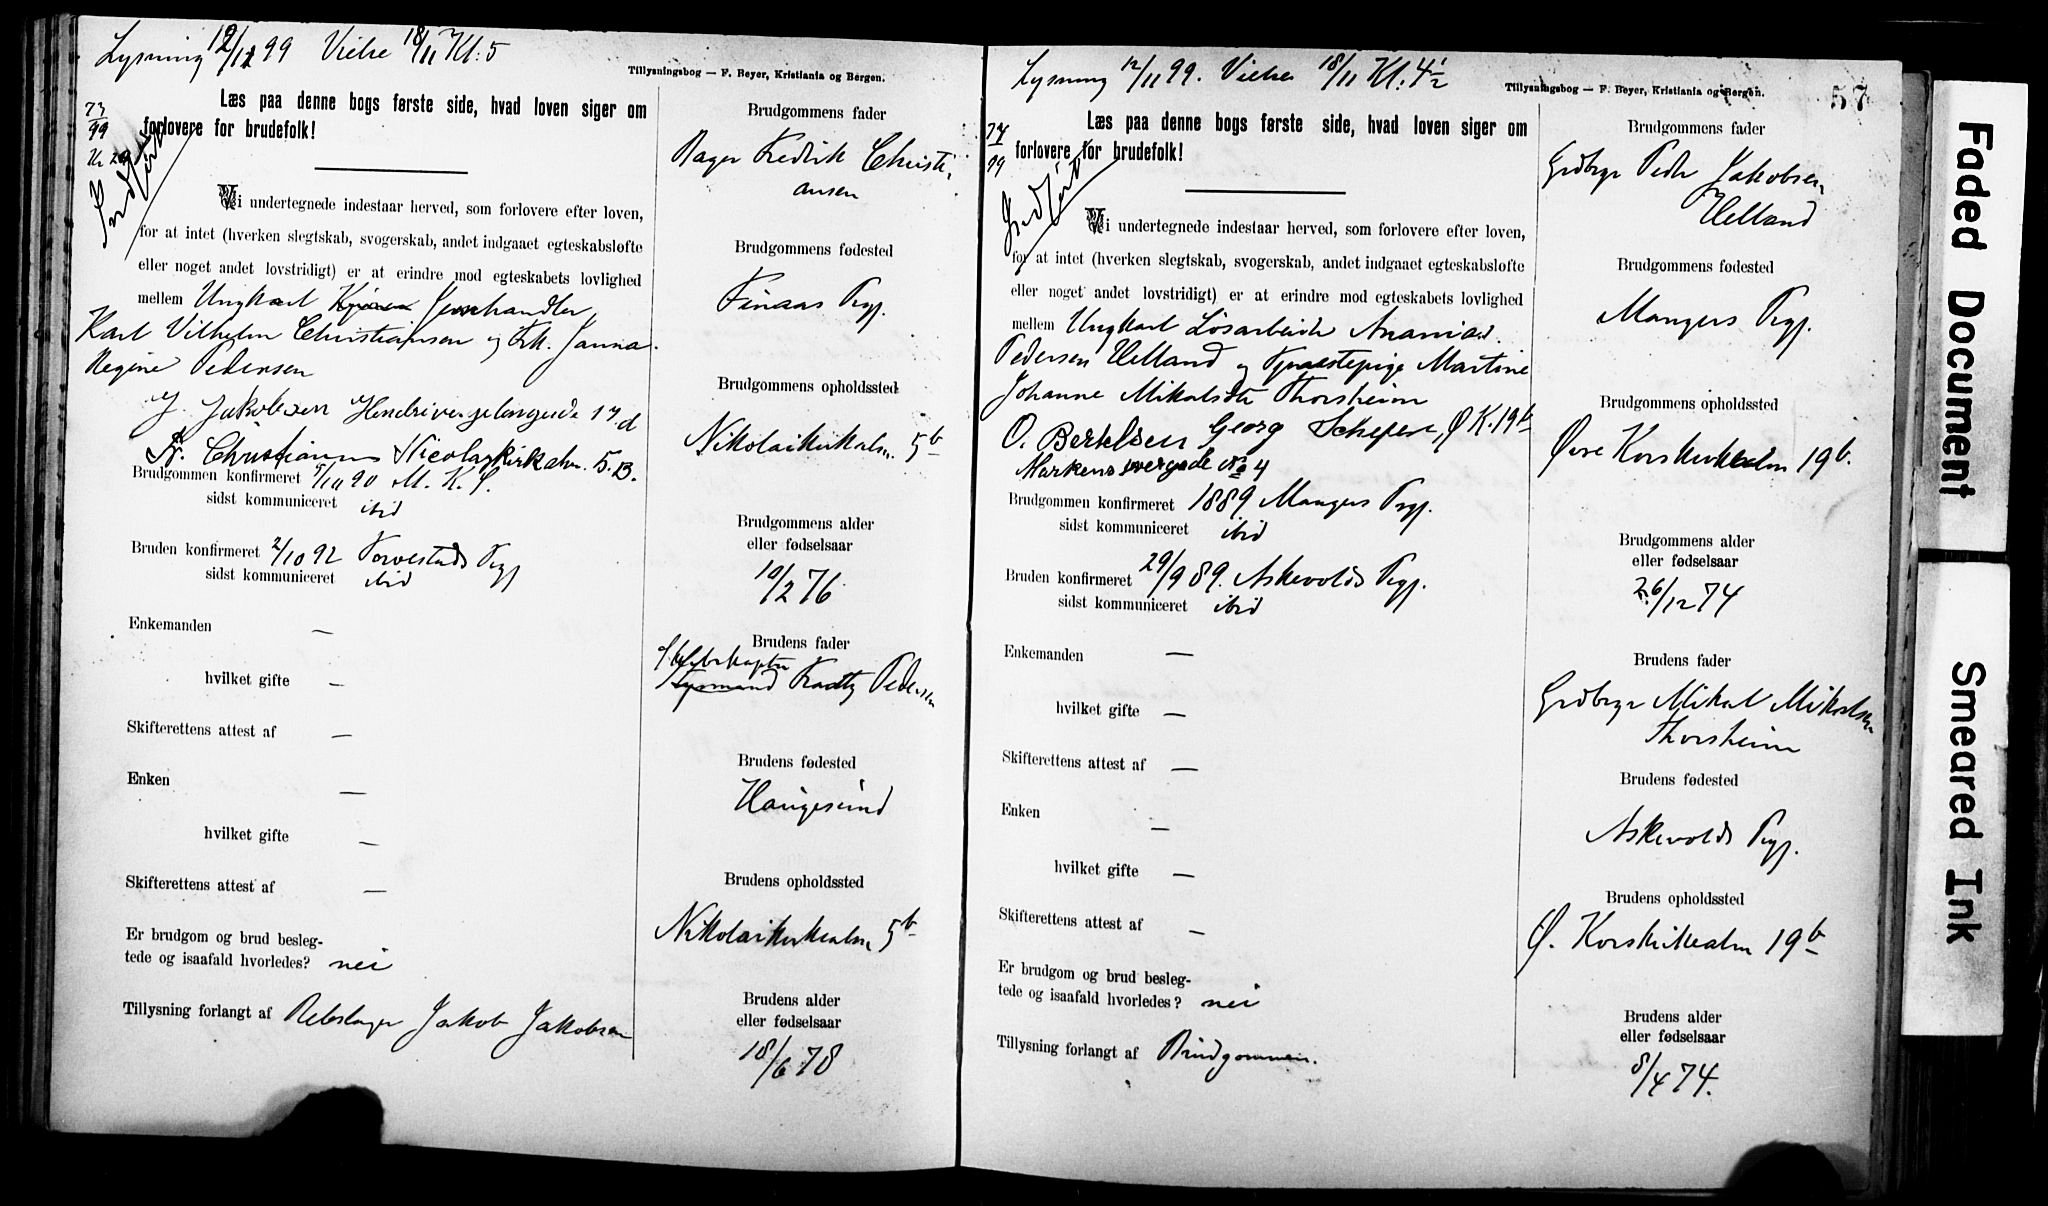 Lysning 12/11 99 Vielse 18/11 Kl. 5
Tillysningsbog — F. Beyer, Kristiania og Bergen.
73/99
Indført
Læs paa denne bogs første side, hvad loven siger om
forlovere for brudefolk!
Vi undertegnede indestaar herved, som forlovere efter loven,
for at intet (hverken slegtskab, svogerskab, andet indgaaet egteskabsløfte
eller noget andet lovstridigt) er at erindre mod egteskabets lovlighed
mellem Ungkarl Jernhandler
Karl Vilhelm Christiansen og Frk. Janna
Regine Pedersen
J. Jakobsen 17 d
Fr. Christiansen Nicolaykirkealm. 5. B.
Brudgommen konfirmeret 5/10 90 M. K. S.
sidst kommuniceret ibid
Bruden konfirmeret 2/10 92 Torvestads Pgj
sidst kommuniceret ibid
Enkemanden —
hvilket gifte —
Skifterettens attest af —
Enken —
hvilket gifte —
Skifterettens attest af —
Er brudgom og brud besleg-
tede og isaafald hvorledes? nei
Tillysning forlangt af Rebslager Jakob Jakobsen
Brudgommens fader
Bager Fredrik Christi-
ansen
Brudgommens fødested
Finaas Pgj.
Brudgommens opholdssted
Nikolaikirkealm. 5b
Brudgommens alder
eller fødselsaar
10/2 76
Brudens fader
Skibskaptn
Pedersen
Brudens fødested
Haugesund
Brudens opholdssted
Nikolaikirkealm 5b
Brudens alder
eller fødselsaar
18/6 78
Lysning 12/11 99. Vielse 18/11 Kl. 4½
Tillysningsbog — F. Beyer, Kristiania og Bergen.
57
74/99
Indført
Læs paa denne bogs første side, hvad loven siger om
forlovere for brudefolk!
Vi undertegnede indestaar herved, som forlovere efter loven,
for at intet (hverken slegtskab, svogerskab, andet indgaaet egteskabsløfte
eller noget andet lovstridigt) er at erindre mod egteskabets lovlighed
mellem Ungkarl Løsarbeider Ananias
Pedersen Helland og Tjenestepige Martine
Johanne Mikalsdtr Thorsheim
O. Berkelsen Georg Ø K. 19b
Markens No 4
Brudgommen konfirmeret 1889 Mangers Pgj.
sidst kommuniceret ibid
Bruden konfirmeret 29/9 89. Askevolds Pgj.
sidst kommuniceret ibid
Enkemanden —
hvilket gifte —
Skifterettens attest af —
Enken —
hvilket gifte —
Skifterettens attest af —
Er brudgom og brud besleg-
tede og isaafald hvorledes? nei
Tillysning forlangt af Brudgommen.
Brudgommens fader
Grdbrgr Peder Jakobsen
Helland
Brudgommens fødested
Mangers Pgj.
Brudgommens opholdssted
Øvre Korskirkealm 19b.
Brudgommens alder
eller fødselsaar
26/12 74
Brudens fader
Grdbrgr Mikal Mikalsen
Thorsheim
Brudens fødested
Askevolds Pgj.
Brudens opholdssted
Ø. Korskirkealm 19b
Brudens alder
eller fødselsaar
8/4 74.
Faded Document
Smeared Ink